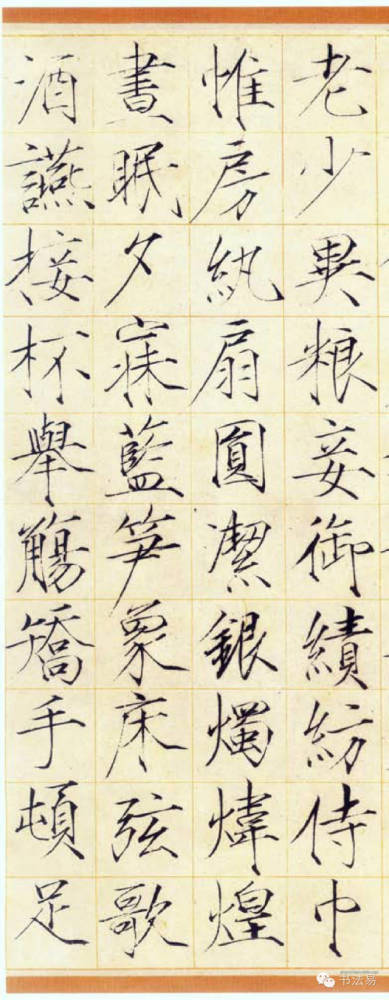 老少異粮妾御績紡侍巾
帷房紈扇圓潔銀燭煒煌
晝眠夕寐藍笋象床弦歌
酒讌接杯舉觴矯手頓足
书法易